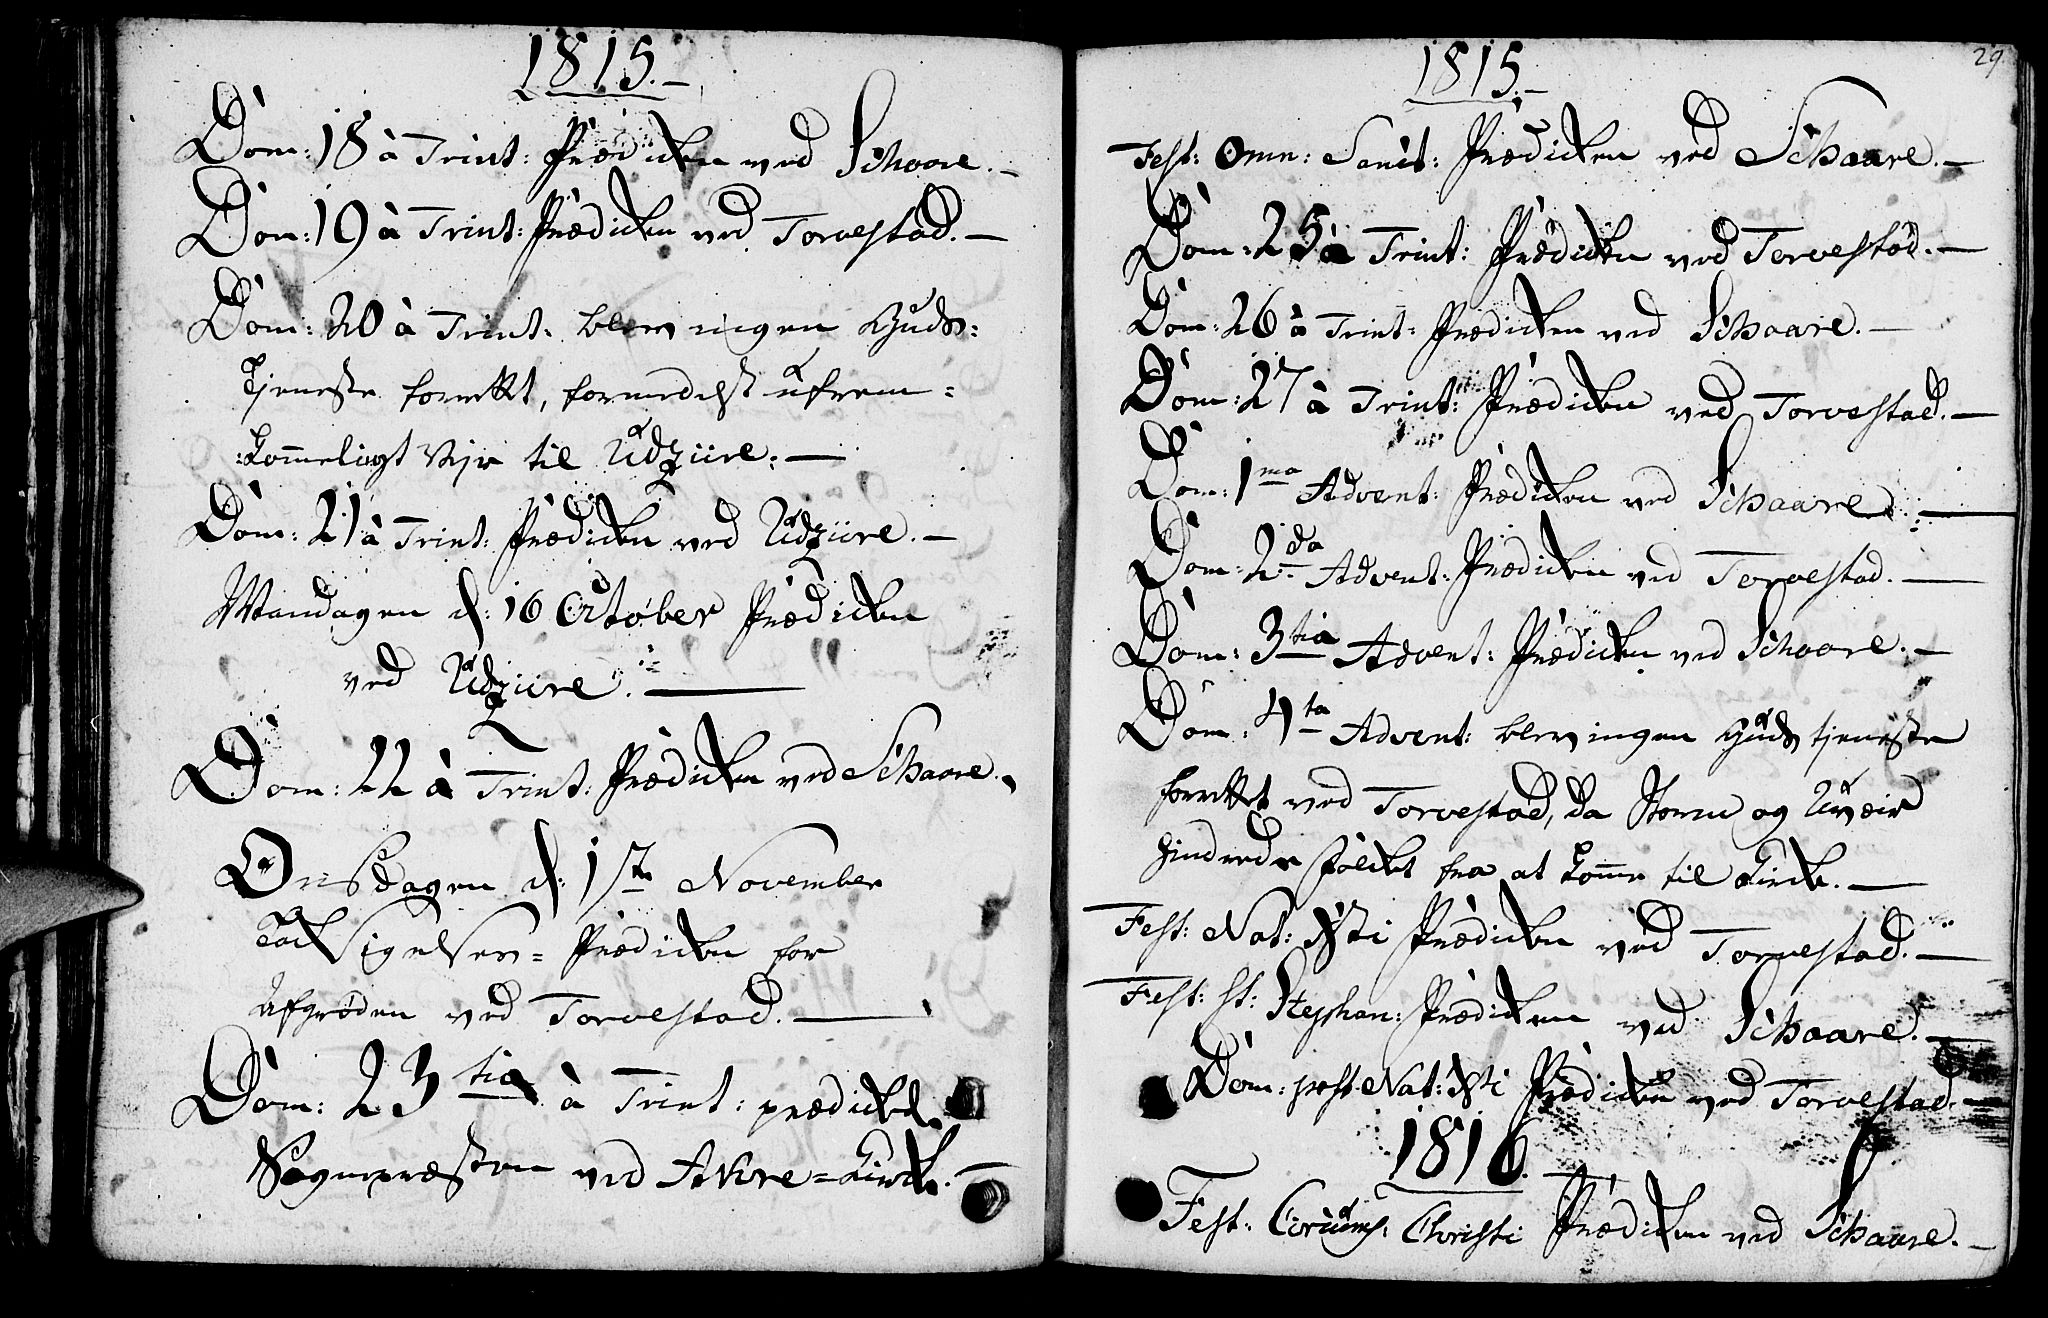 1815.—
Dom: 18 à Trint: Prædicken ved Schaare.—
Dom: 19 à Trint: Prædicken ved Torvestad.—
Dom: 20 à Trint: blev ingen Guds:
Tjeneste forrettet, formedelst ufrem=
:kommeligt Vejr til Udziire.—
Dom: 21 à Trint: Prædicken ved Udziire.—
Mandagen d: 16 October Prædicken
ved Udziire.—
Dom: 22 à Trint: Prædicken ved Schaare.
Onsdagen d: 1ste November
Tacksigelses= Prædicken for
Afgrøden ved Torvestad.—
Dom: 23tia à Trint: prædicked
Sognepræsten ved Akre=Kircke.—
29.
1815.—
Fest: Omn: Sanct: Prædicken ved Schaare.—
Dom: 25 à Trint: Prædicken ved Torvestad.—
Dom: 26 à Trint: Prædicken ved Schaare.—
Dom: 27 à Trint: Prædicken ved Torvestad.—
Dom: 1ma Advent: Prædicken ved Schaare.—
Dom: 2da Advent: Prædicken ved Torvestad.—
Dom: 3tia Advent: Prædicken ved Schaare.—
Dom: 4ta Advent: blev ingen Guds tjeneste
forrettet ved Torvestad, da Storm og Uveir
hindrede Folcket fra at komme til Kircke.—
Fest: Nat: Xsti Prædicken ved Torvestad.—
Fest: St: Stephan: Prædicken ved Schaare.—
Dom: post Nat: Xsti Prædicken ved Torvestad.—
1816.—
Fest: Circums: Christi Prædicken ved Schaare.—